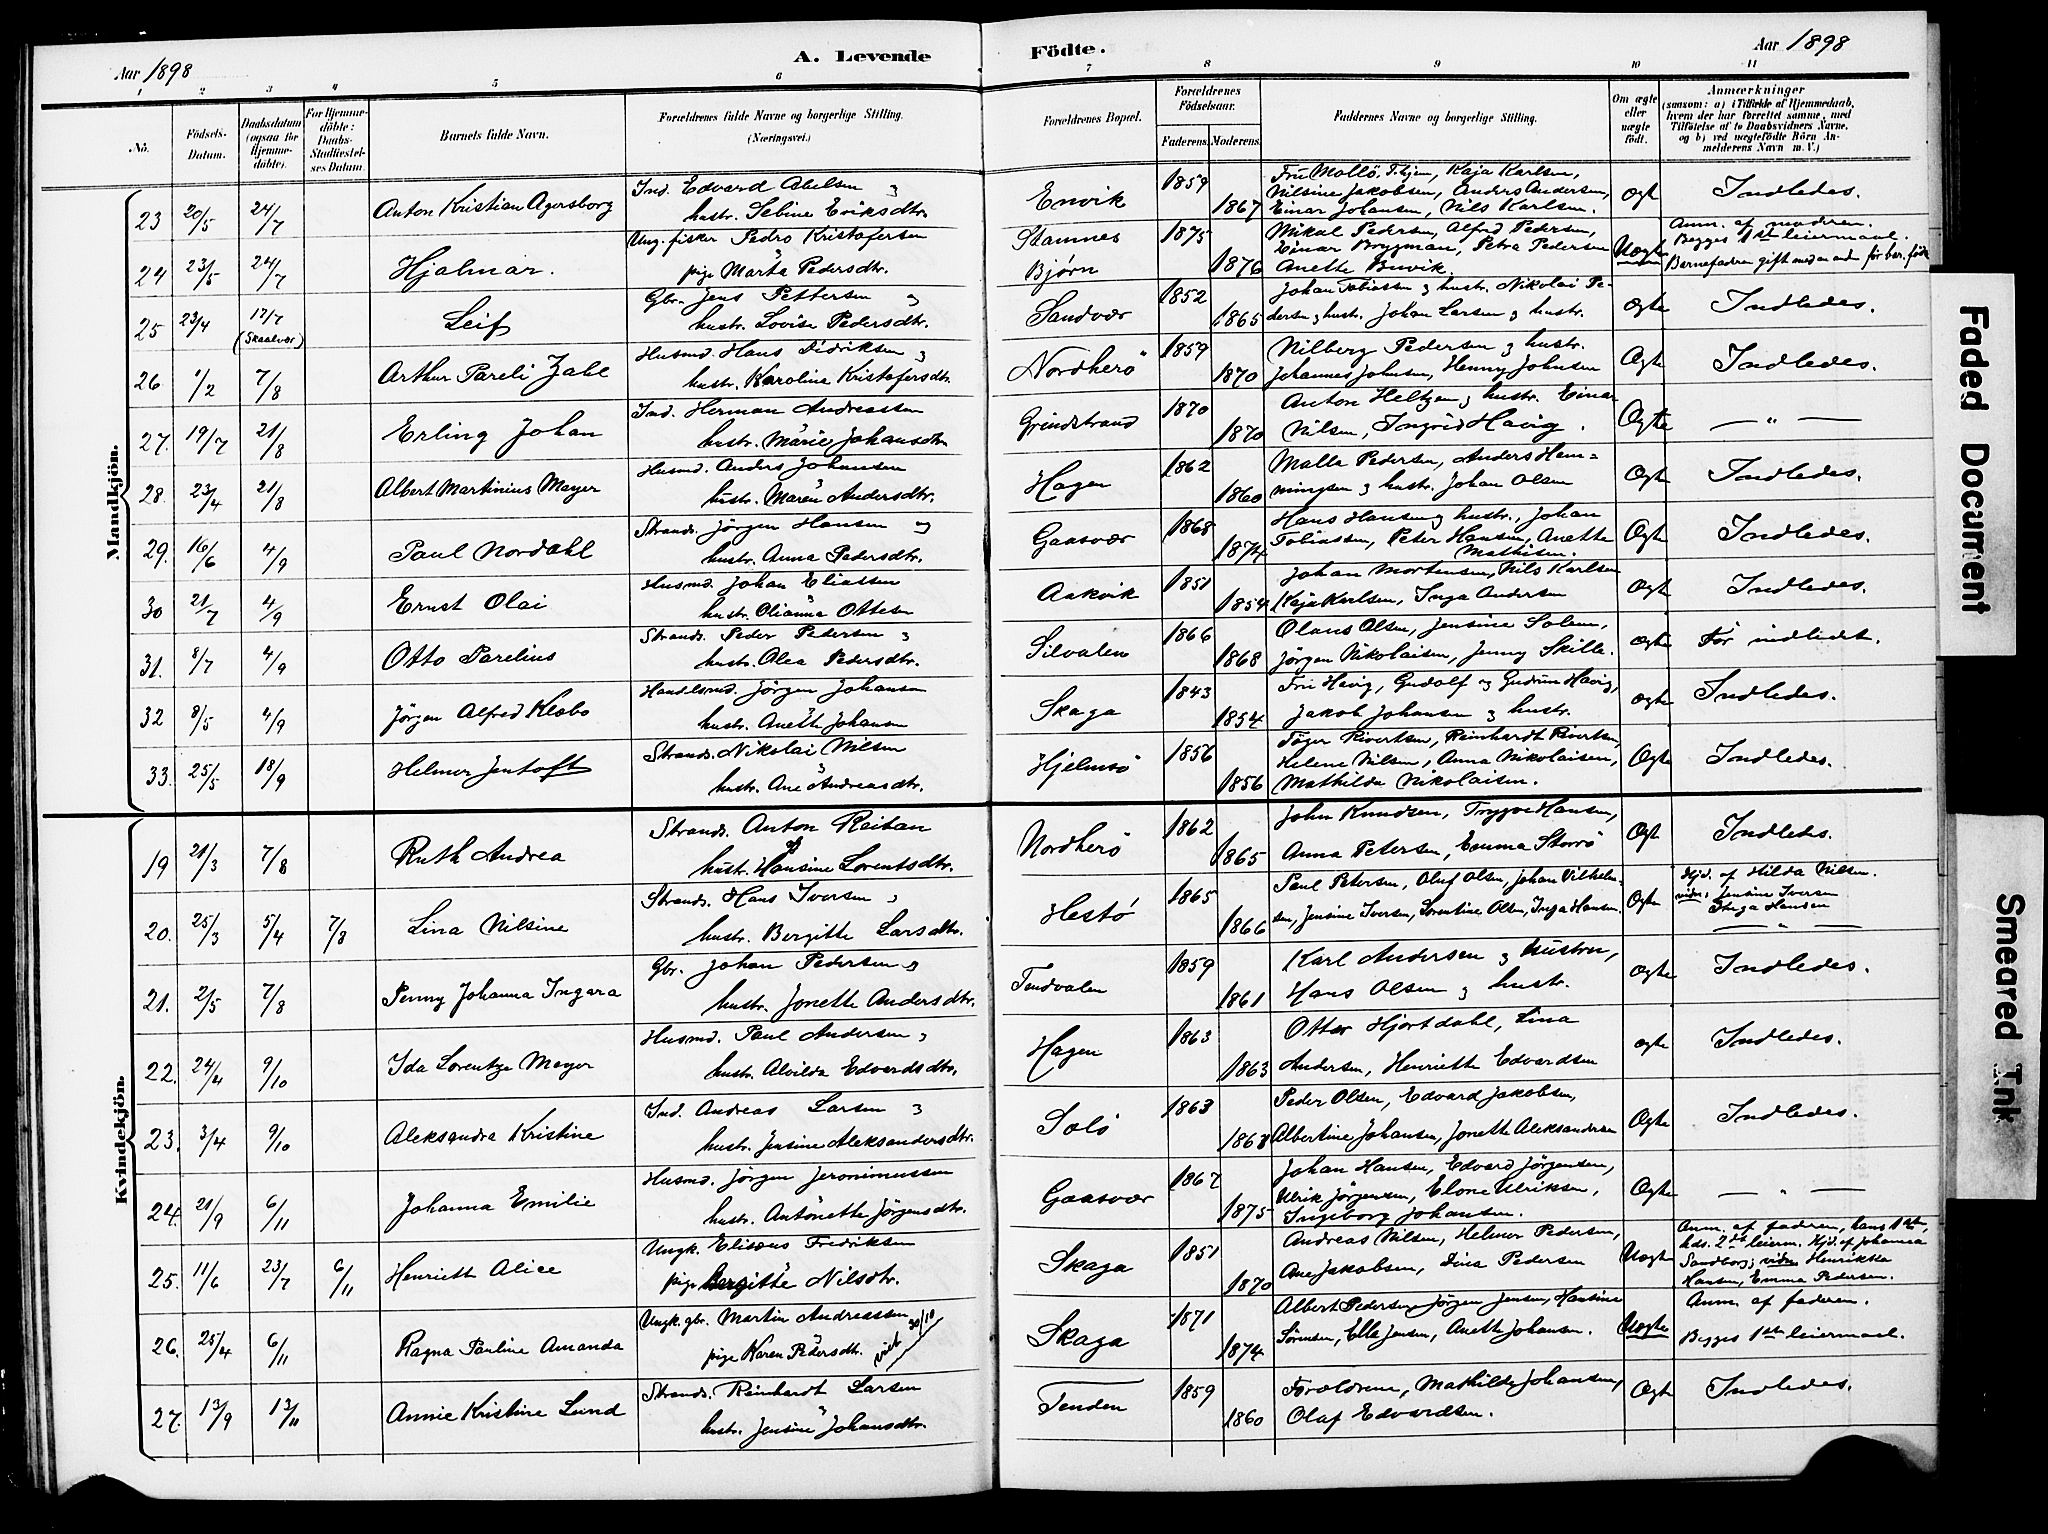 Aar 1898
A. Levende
Födte.
Aar 1898
1 2 3 4 5 6 7 8 9 10 11
No.
Födsels-Datum.
Daabsdatum (ogsaa for Hjemmedöbte).
For Hjemmedöbte: Daabs-Stadfæstelses Datum
Barnets fulde Navn.
Forældrenes fulde Navne og borgerlige Stilling. (Næringsvei.)
Forældrenes Bopæl.
Forældrenes Födselsaar.
Faderens. Moderens.
Faddernes Navne og borgerlige Stilling.
Om ægte eller uægte födt.
Anmærkninger
(saasom: a) i Tilfælde af Hjemmedaab, hvem der har forrettet samme, med Tilföielse af to Daabsvidners Navne, og b) ved uægtefödte Börn Anmelderens Navn m. V.)
Mandkjön.
23 20/5 24/7 Anton Kristian Agersborg
Ind. Edvard Abelsen og
hustr. Sebine Eriksdtr.
Envik 1859 1867
Fru Mollö, Thjem, Kaja Karlsen,
Nilsine Jakobsen, Anders Andersen,
Einar Johansen, Nils Karlsen.
Ægt Indledes.
24 23/5 24/7 Hjalmar.
Ung. fisker Pedro Kristofersen
pige Marta Pedersdtr.
Stamnes
Bjørn 1875 1876
Mikal Pedersen, Alfred Pedersen,
Einar Brygman, Petra Pedersen
Anette Buvik.
Uægte
Anm. af moderen.
Begges 1ste leiermaal.
Barnefadren gift med en anden før bar. føds
25 23/4 17/7 (Skaalvær) Leif
Gbr. Jens Pettersen og
hustr. Lovise Pedersdtr.
Sandvær 1852 1865
Johan Tobiassen og hustr. Nikolai Pe-
dersen og hustr. Johan Larsen og hustr.
ægte Indledes.
26 1/2 7/8 Arthur Pareli Zahl
Husmd. Hans Didriksen og
hustr. Karolina Kristofersdtr.
Nordherö 1859 1870
Nilberg Pedersen og hustr.
Johannes Johnsen, Henny Johnsen
Ægte Indledes.
27. 19/7 21/8 Erling Johan
Ind. Herman Andreassen
hustr. Marie Johansdtr.
Grindstrand 1870 1870
Anton Heltzen og hustr. Einar
Nilsen, Ingrid Havig.
Ægte — " —
28. 23/4 21/8 Albert Martinius Mayer
Husmd. Anders Johansen
hustr. Maren Andersdtr.
Hagen 1862 1860
Malla Pedersen, Anders Hem-
mingsen og hustr. Johan Olsen
Ægte Indledes.
29. 16/6 4/9 Paul Nordahl
Strands. Jörgen Hansen og
hustr. Anna Pedersdtr.
Gaasvær 1868 1874
Hans Hansen og hustr., Johan
Tobiassen, Peter Hansen, Anette
Mathisen.
Ægte Indledes.
30 21/7 4/9 Ernst Olai
Husmd. Johan Eliassen
hustr. Olianna Ottesen
Aakvik 1851 1854
Johan Mortensen, Nils Karlsen
Kaja Karlsen, Inga Andersen
Ægte Indledes.
31. 8/7 4/9 Otto Parelius
Strands. Peder Petersen og
hustr. Alea Pedersdtr.
Silvalen 1866 1868
Olaus Olsen, Jensine Solem,
Jörgen Nikolaisen, Jenny Skille.
ægte Før indledet.
32 8/5 4/9 Jörgen Alfred Klæbo
Handelsmd. Jörgen Johansen
hustr. Anette Johansen
Skaga 1843 1854
Fru Havig, Gudolf og Gudrun Havig,
Jakob Johansen og hustr.
ægte Indledes.
33. 25/5 18/9 Helmer Jentoft
Strands. Nikolai Nilsen
hustr. Ane Andreasdtr.
Hjelmsö 1856 1856
Töger Rivertsen, Reinhardt Rivertsen,
Helene Nilsen, Anna Nikolaisen,
Mathilda Nikolaisen.
Ægte Indledes.
Kvindekjön.
19 21/3 7/8 Ruth Andrea
Strands. Anton Reitan
og
hustr. Hansine Lorentsdtr.
Nordherö 1862 1865
John Knudsen, Trygve Hansen,
Anna Petersen, Emma Storrö
Ægt Indledes.
20. 25/3 5/4 7/8 Lina Nilsine
Strands. Hans Iversen og
hustr. Bergitte Larsdtr.
Hestö 1865 1866
Paul Petersen, Oluf Olsen, Johan Vilhelm-
sen, Jensine Iversen, Lorentine Olsen, Inga Hansen.
Ægte
Hjd. af Hilda Nilsen.
vidn: Jensine Iversen
Inga Hansen
— " —
21. 2/5 7/8 Penny Johanna Ingara
Gbr. Johan Pedersen og
hustr. Jonette Andersdtr.
Tendvalen 1859 1861
Karl Andersen og hustru,
Hans Olsen og hustr.
ægte Indledes.
22. 24/4 9/10 Ida Lorentze Meyer
Husmd. Paul Andersen og
hustr. Alvilda Edvardsdtr.
Hagen 1863 1863
Otter Hjortdahl, Lina
Andersen, Henriette Edvardsen
ægte Indledes.
23. 3/4 9/10 Aleksandra Kristine
Ind. Andreas Larsen og
hustr. Jensine Aleksandersdtr.
Solö 1863 1868
Peder Olsen, Edvard Jakobsen,
Albertine Johansen, Jonette Aleksandersen
Ægte Indledes.
24. 21/9 6/11 Johanna Emilie
Husmd. Jörgen Jeronimussen
hustr. Antonette Jörgensdtr.
Gaasvær 1867 1875
Johan Hansen, Edvard Jörgensen,
Ulrik Jörgensen, Elone Ulriksen,
Ingeborg Johansen.
Ægte — " —
25. 11/6 23/7 6/11 Henriette Alice
Ungk. Elisæus Fredriksen
pige Bergitte Nilsdtr.
Skaga 1851 1870
Andreas Nilsen, Helmer Pedersen,
Ane Jakobsen, Dina Pedersen
Uægte
Anm. af faderen, hans 1ste,
hds. 2det leierm. Hjd. af Johanna
Sandborg; vidn: Henrikke
Hansen, Emma Pedersen.
26. 25/4 6/11 Ragna Pauline Amanda
Ungk. gbr. Martin Andreassen
pige Karen Pedersdtr. viet 30/10
Skaga 1871 1874
Albert Pedersen, Jörgen Jensen, Hansine
Sörensen, Ella Jensen, Anette Johansen.
Uægte
Anm. af faderen.
Begges 1ste leiermaal.
27. 13/9 13/11 Annie Kristine Lund
Strands. Reinhardt Larsen
hustr. Jensine Johansdtr.
Tenden 1859 1860
Forældrene, Mathilde Johansen,
Olaf Edvardsen.
Ægte Indledes.
Faded Document
Smeared Ink